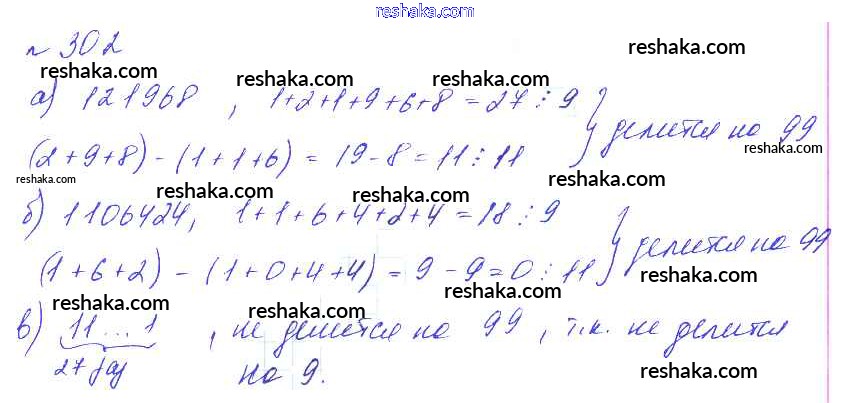 reshaka.com
№ 302
reshaka.com
reshaka.com reshaka.com reshaka.com
а) 121968, 1+2+1+9+6+8=27⋮9
(2+9+8)-(1+1+6)=19-8=11⋮11 } делится на 99
reshaka.com reshaka.com
reshaka.com reshaka.com reshaka.com
б) 1106424, 1+1+6+4+2+4=18⋮9
(1+6+2)-(1+0+4+4)=9-9=0⋮11 } делится на 99
reshaka.com reshaka.com reshaka.com
reshaka.com reshaka.com reshaka.com
в) 11...1, не делится на 99, т.к. не делится
27 раз
на 9.
reshaka.com reshaka.com reshaka.com